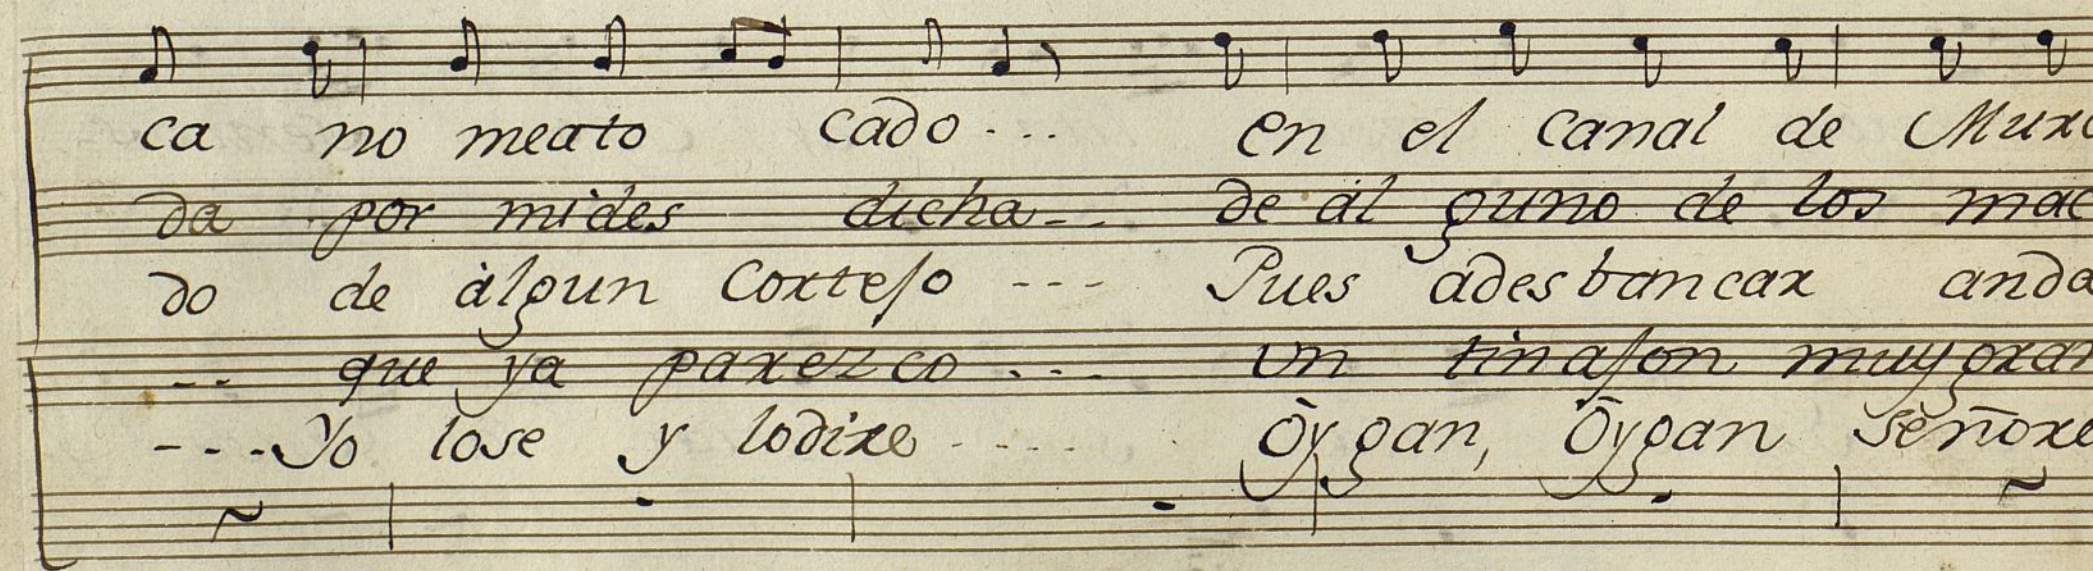 ca no meato cado...
en el canal de Murc
da por mi des dicha--
de àl guno de los mac
do de àlgun Cortejo ---
Pues ades bancar anda
-- que ya parezco ...
un tinajon muy gran
---Yo lose y lodire ----
Òygan, Òygan señore